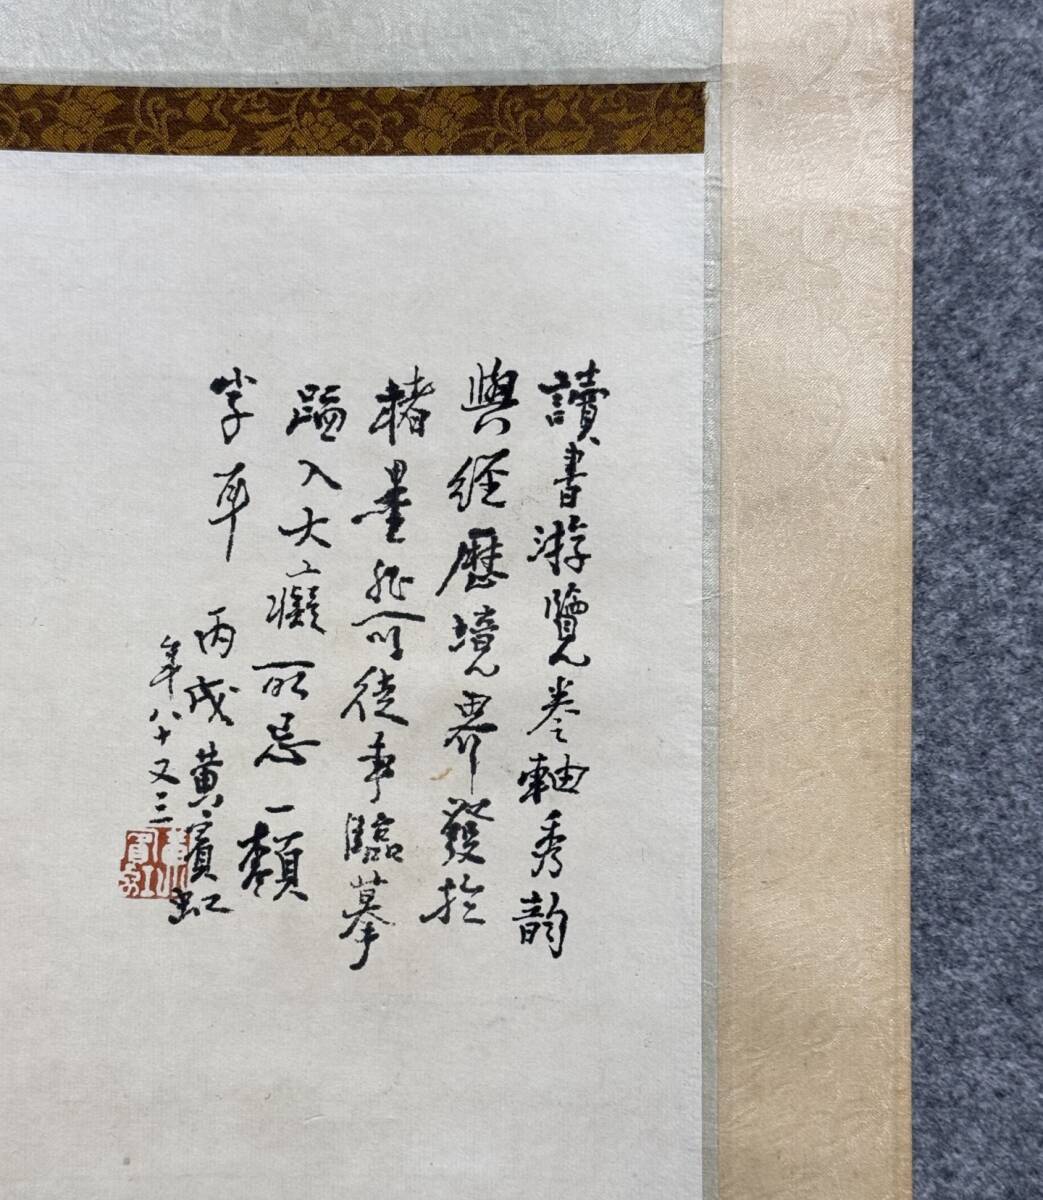 讀書游覽卷軸秀韵
與經歷境界發於
楮墨非可徒事臨摹
蹈入大癡所忌一賴
字耳 丙戌黃賓虹
年八十又三